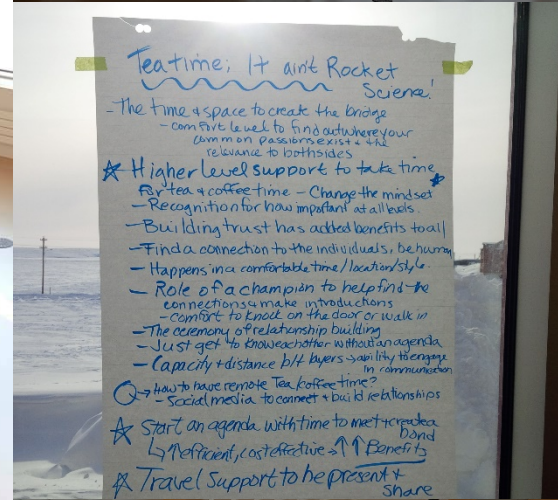 Teatime; It ain't Rocket
Science!
- The time & space to create the bridge
- comfort level to find out where your
common passions exist & the
relevance to both sides
☆ Higher level support to take time ☆
for tea & coffee time - Change the mindset
- Recognition for how important at all levels.
- Building trust has added benefits to all
- Find a connection to the individuals, be human
- Happens in a comfortable time/location/style.
- Role of a champion to help find the
connections & make introductions
- comfort to knock on the door or walk in
- The ceremony of relationship building
- Just get to know eachother without an agenda
- Capacity & distance b/t layers → ability to engage
in communication
Q → How to have remote Tea/coffee time?
- Social media to connect & build relationships
☆ Start an agenda with time to meet & create a
bond
↳ ↑ efficient, cost effective → ↑↑ Benefits
☆ Travel support to be present &
share